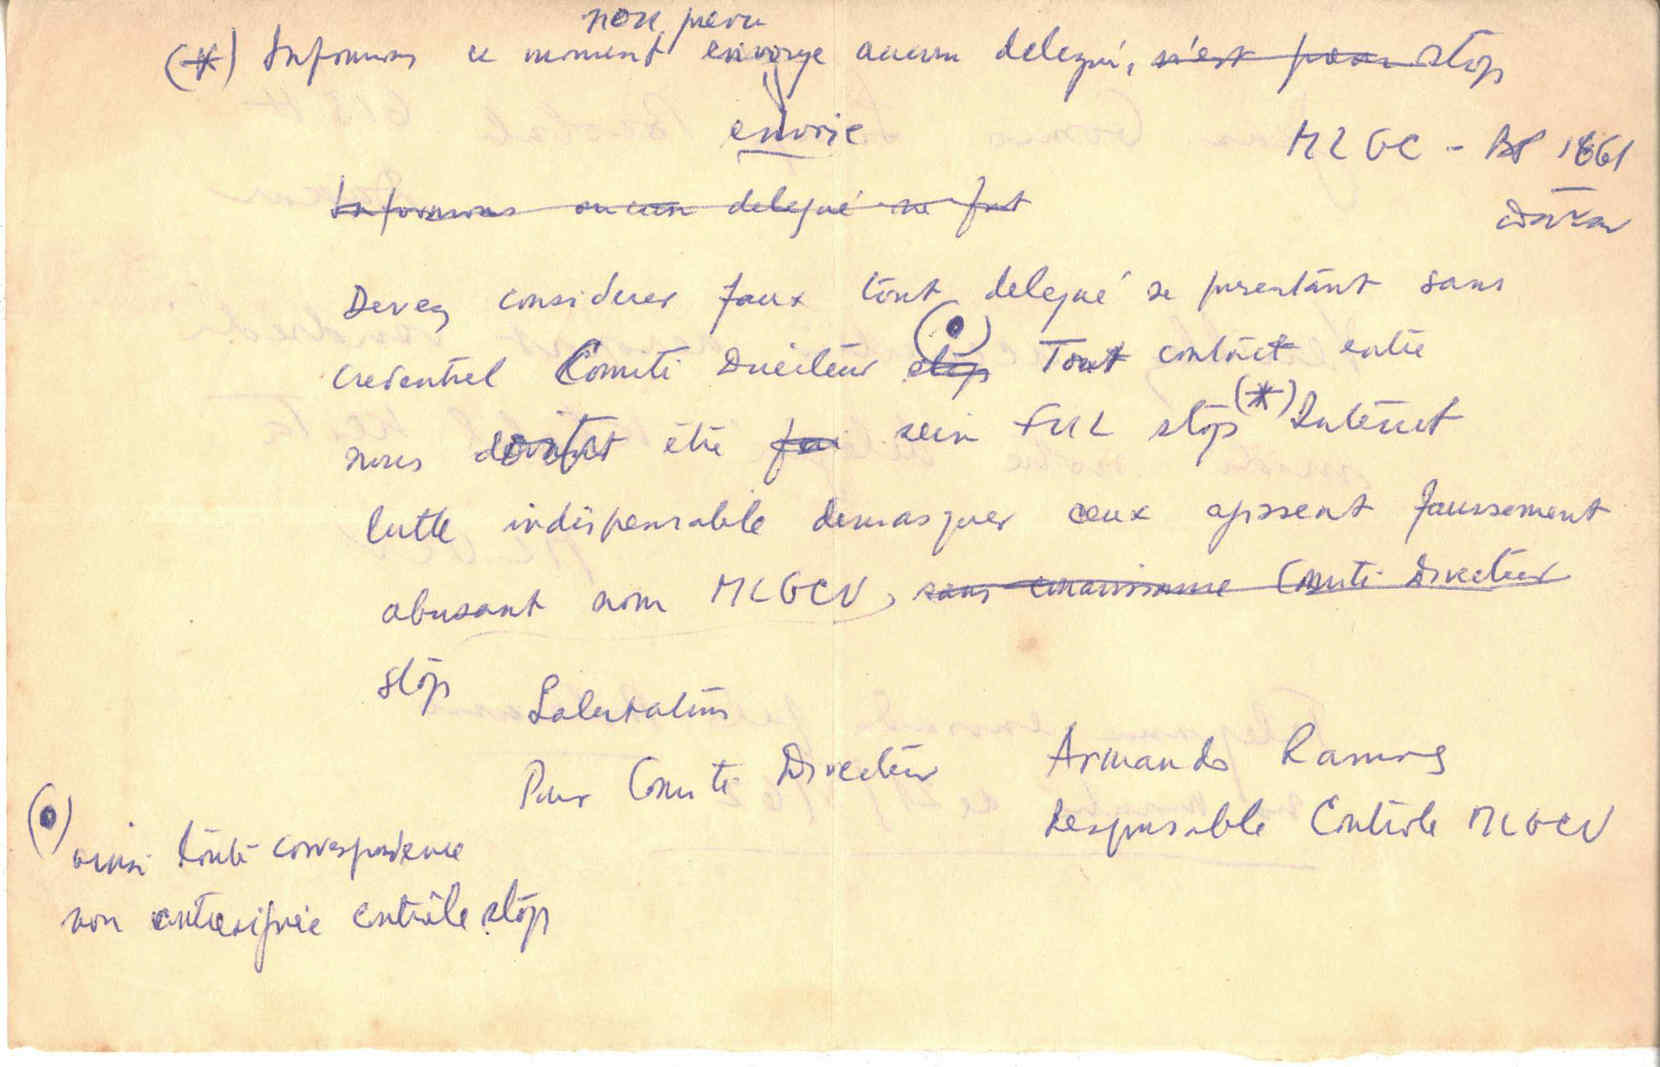 non prevu
(*) Informons ce moment envoye aucun delegué, n'est pas stop
envoie
MLGC - BP 1861
Dakar
Informons aucun delegué ne fut
Devez considerer faux tout delegué se presentant sans
credentiel Comité Directeur stop (•) Tout contact entre
nous doit être fai sein FUL stop (*) Intérêt
lutte indispensable demasquer ceux agissent faussement
abusant nom MLGCV, sans connaissance Comité Directeur
stop
Salutations
Pour Comité Directeur
Armando Ramos
Responsable Contrôle MLGCV
(•) ainsi toute correspondence
non contresignée contrôle stop